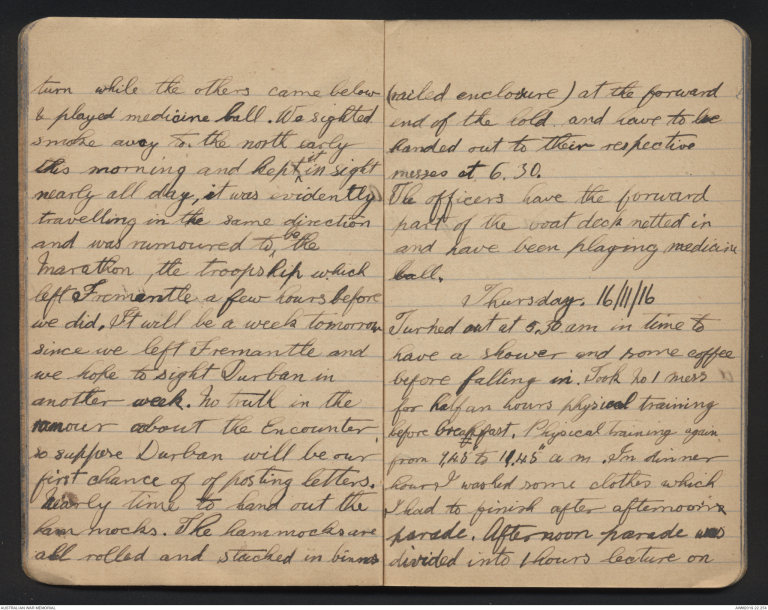 turn while the others came below
& played medicine ball. We sighted
smoke away to the north early
this morning and kept it in sight
nearly all day, it was evidently
travelling in the same direction
and was rumoured to be the
Marathon, the troopship which
left Fremantle a few hours before
we did. It will be a week tomorrow
since we left Fremantle and
we hope to sight Durban in
another week. No truth in the
rumour about the Encounter
so suppose Durban will be our
first chance of of posting letters.
Nearly time to hand out the
hammocks. The hammocks are
all rolled and stacked in binns
(railed enclosure) at the forward
end of the hold and have to be
handed out to their respective
messes at 6.30.
The officers have the forward
part of the boat deck netted in
and have been playing medicine
ball.
Thursday. 16/11/16
Turned out at 5.30 am in time to
have a shower and some coffee
before falling in. Took No 1 mess
for half an hours physical training
before breakfast. Physical training again
from to a m. In dinner
hour I washed some clothes which
I had to finish after afternoon
parade. Afternoon parade was
divided into 1 hours lecture on
AUSTRALIAN WAR MEMORIAL